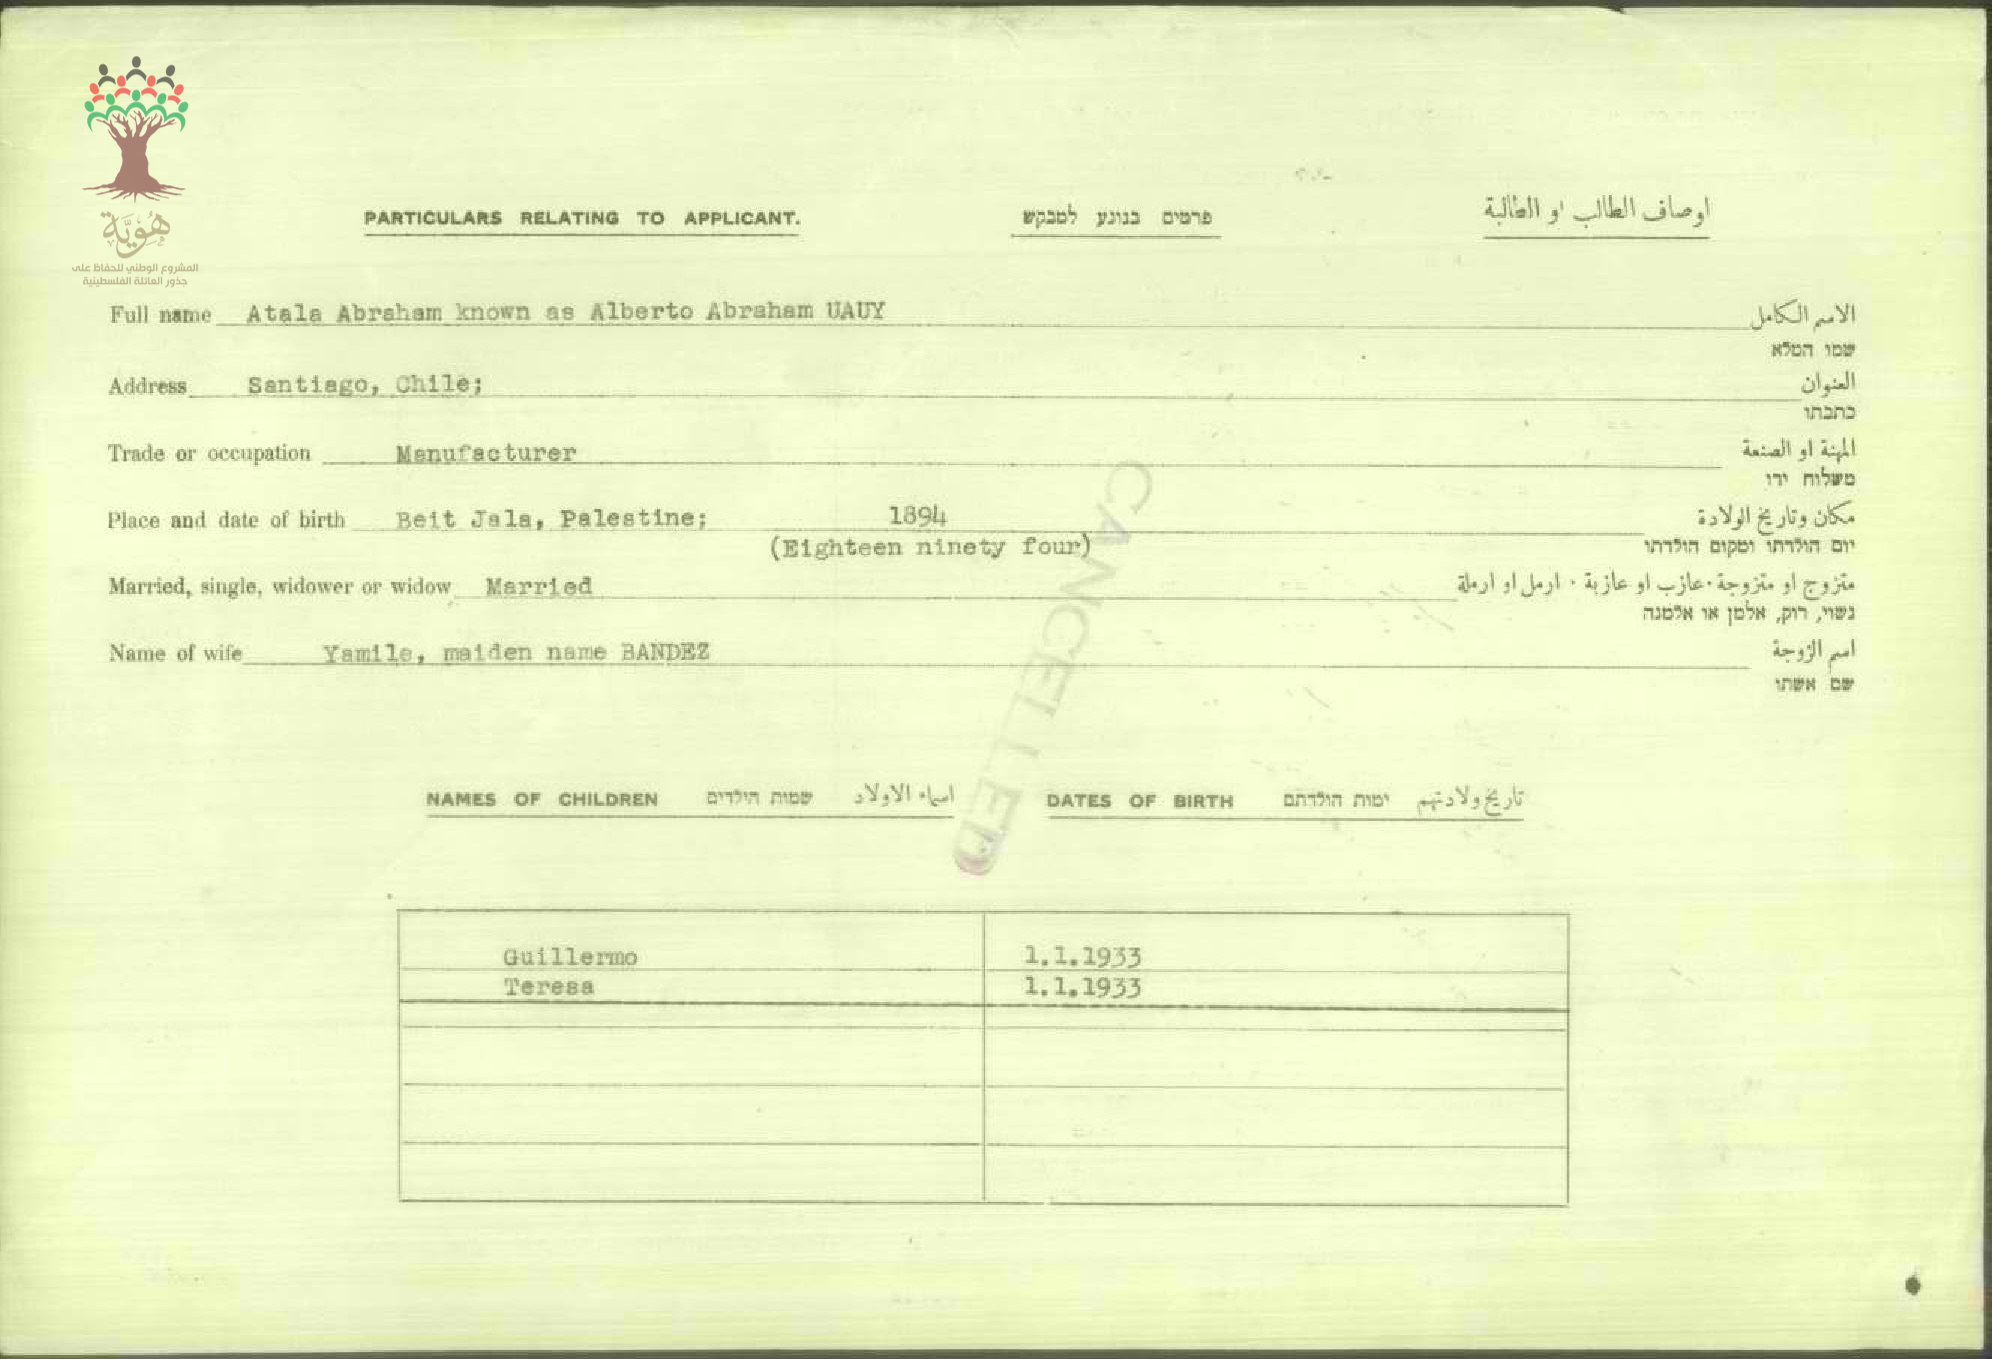 هُوِيَّة
المشروع الوطني للحفاظ على
جذور العائلة الفلسطينية
PARTICULARS RELATING TO APPLICANT. פרטים בנוגע למבקש اوصاف الطالب او الطالبة
Full name Atala Abraham known as Alberto Abraham UAUY الاسم الكامل
שמו המלא
Address Santiago, Chile; العنوان
כתבתו
Trade or occupation Manufacturer المهنة او الصنعة
משלוח ידו
Place and date of birth Beit Jala, Palestine; 1894 مكان وتاريخ الولادة
(Eighteen ninety four) יום הולדתו ומקום הולדתו
Married, single, widower or widow Married متزوج او متزوجة · عازب او عازبة · ارمل او ارملة
נשוי, רוק, אלמן או אלמנה
Name of wife Yamile, maiden name BANDEZ اسم الزوجة
שם אשתו
CANCELLED
NAMES OF CHILDREN שמות הולדים اسماء الاولاد DATES OF BIRTH ימות הולדתם تاريخ ولادتهم
Guillermo 1.1.1933
Teresa 1.1.1933